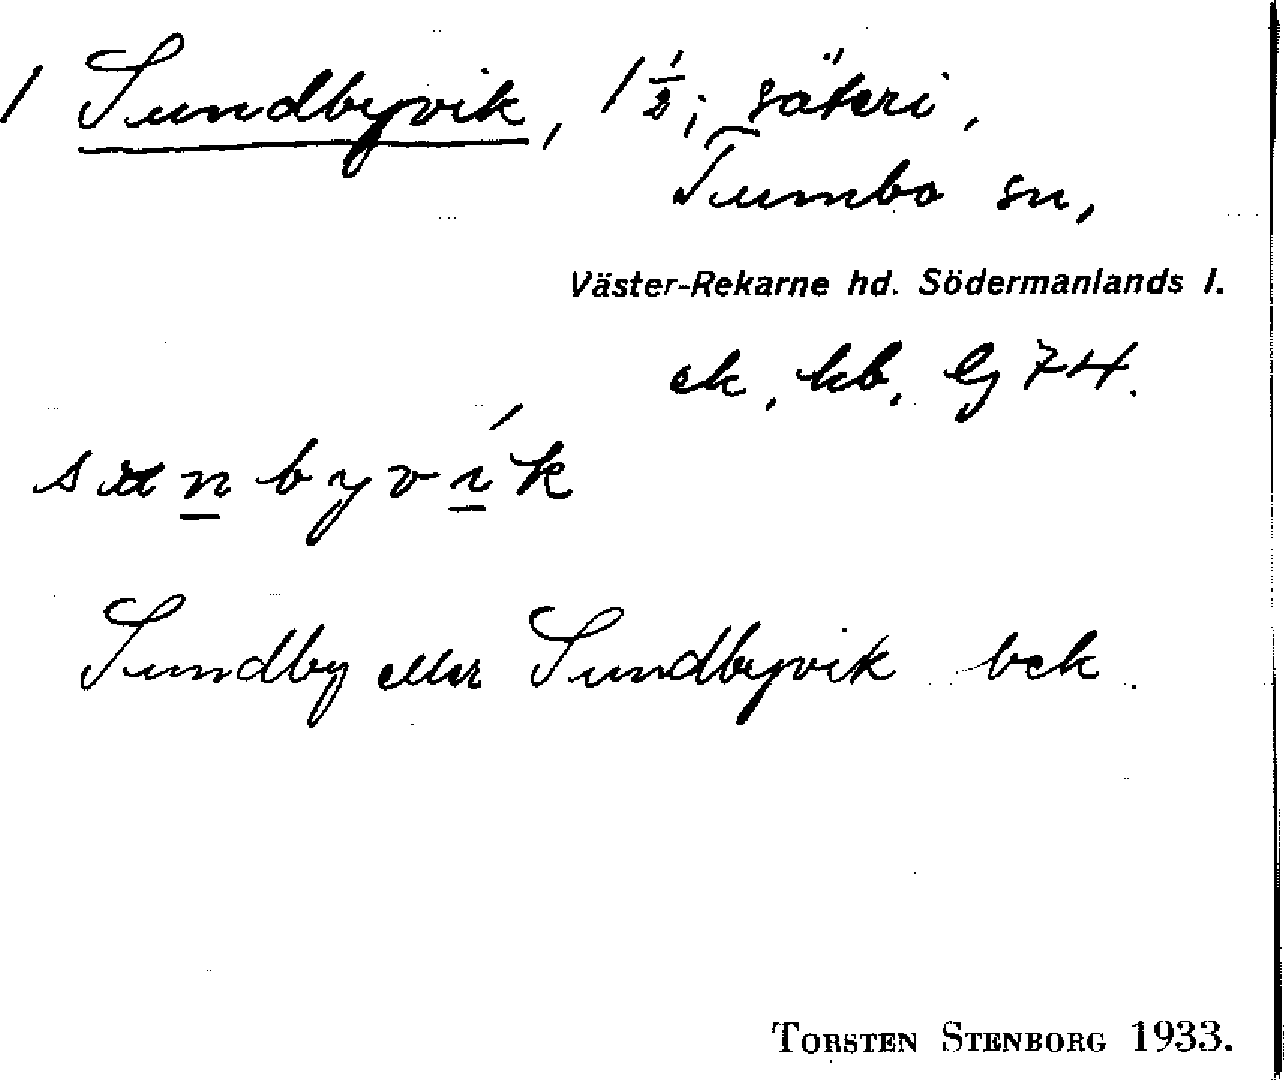 1 Sundbyvik, 1 1/2; säteri,
Tumbo sn,
Väster-Rekarne hd. Södermanlands l.
ek, kb, Gg 74.
Sundby eller Sundbyvik bek.
TORSTEN STENBORG 1933.